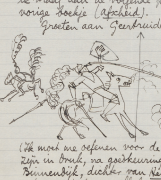 vorige boekje (Afscheid).
Groeten aan Geertruida
(Ik moet me oefenen voor de
zijn in druk, na goedkeuring
Binnendijk, dichter van